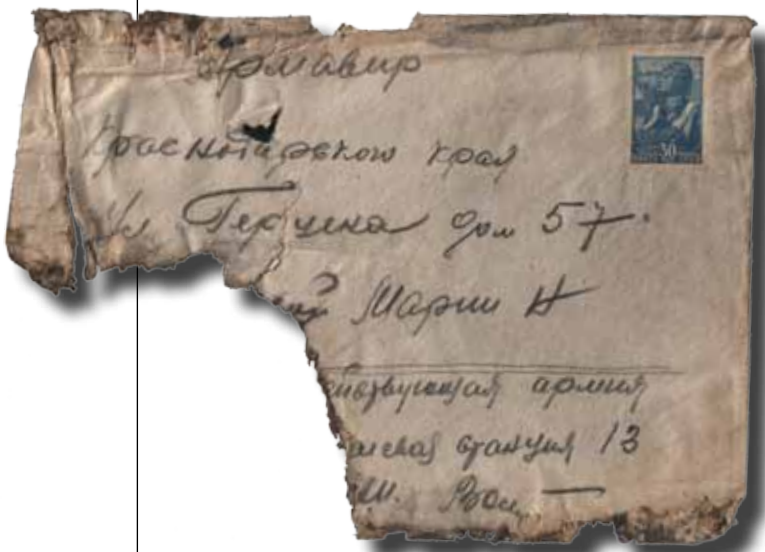 Армавир
Краснодарского края
ул Герцена дом 57.
Марии Н
ействующая армия
станция 13
30